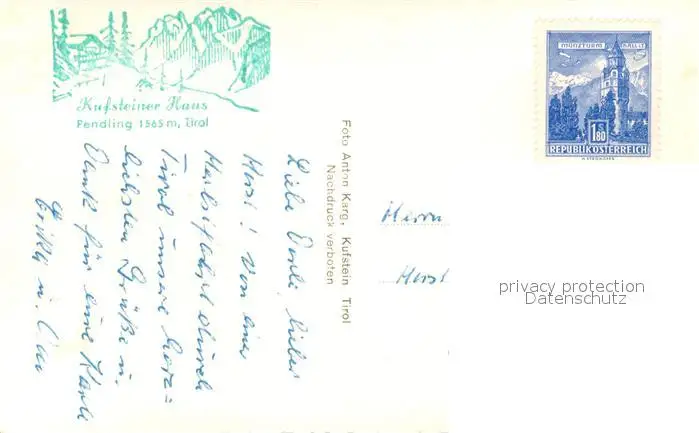 Kufsteiner Haus
Pendling 1565 m, Tirol
Liebe Dorli, lieber
Horst! Von einer
durch
Tirol unsere herz=
lichsten Grüße u.
Dank für eure Karte
u.
Foto Anton Karg, Kufstein Tirol
Nachdruck verboten
MÜNZTURM HALL i.T.
1.80
S
REPUBLIK ÖSTERREICH
Herrn
Horst
privacy protection
Datenschutz